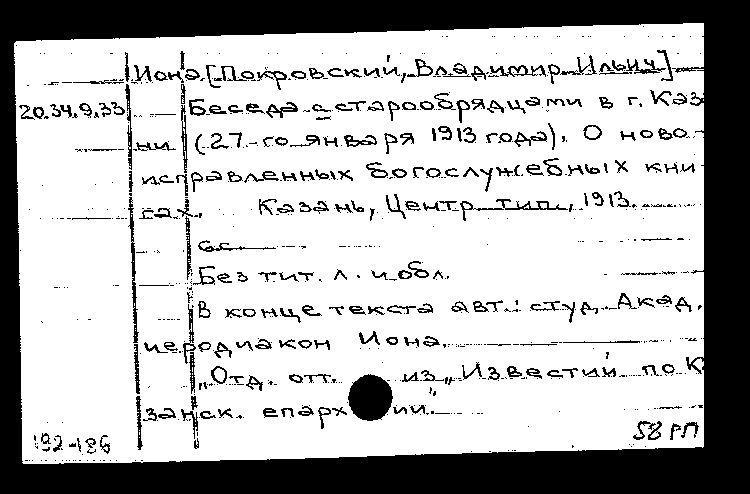 Иона [Покровский, Владимир Ильич]
20.34.9.33 Беседа с старообрядцами в г. Каз
ни (27-го января 1913 года). О ново-
исправленных богослужебных кни
гах. Казань, Центр. тип., 1913.
6 с.
Без тит. л. и обл.
В конце текста авт.: студ. Акад.
иеродиакон Иона.
„Отд. отт. из „Известий по К
занск. епархии".
192-186 58 РП